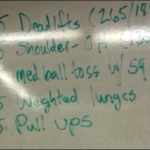 5 Deadlifts (265/18
5 Shoulder-
med ball toss w/ sq
5 Weighted lunges
5 Pull ups